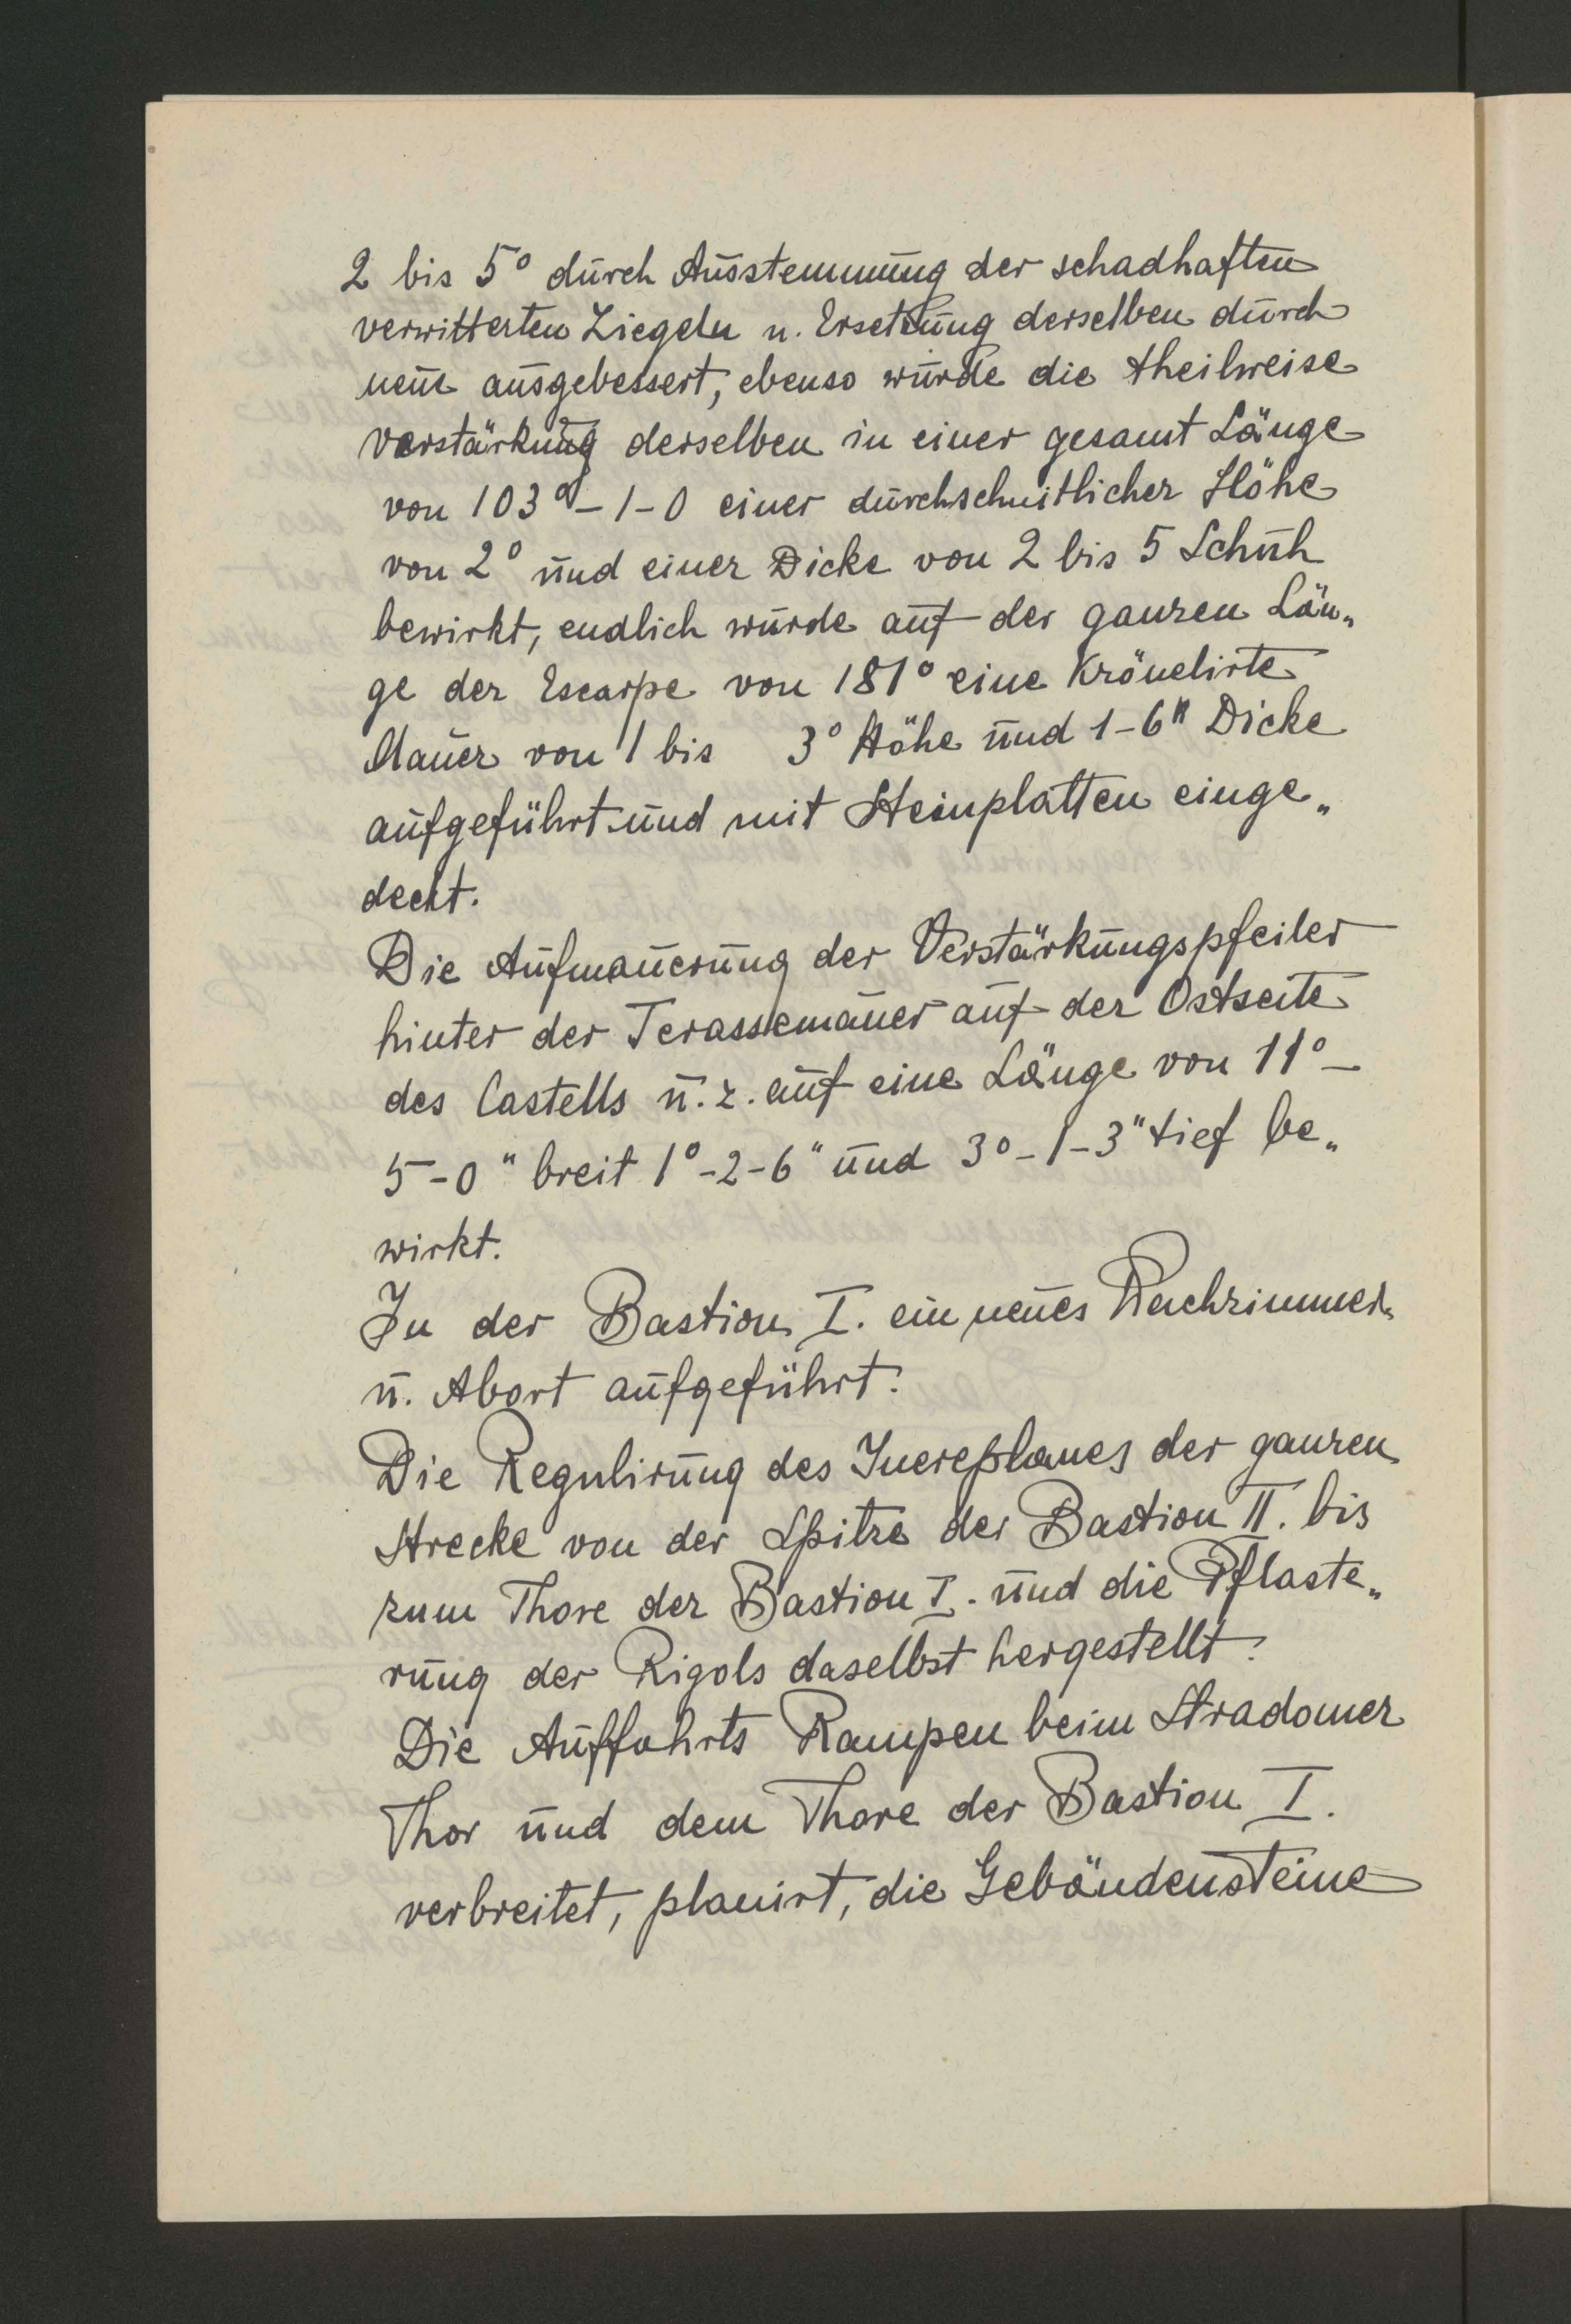 2 bis 5° durch Ausstemmung der schadhaften
verwitterten Ziegeln u. Ersetzung derselben durch
neue ausgebessert, ebenso wurde die theilweise
Verstärkung derselben in einer gesamt Länge
von 103°-1-0 einer durchschnitlicher Höhe
von 2° und einer Dicke von 2 bis 5 Schuh
bewirkt, endlich wurde auf der ganzen Län„
ge der Escarpe von 181° eine Krönelirte
Mauer von 1 bis 3° Höhe und 1-6" Dicke
aufgeführt und mit Steinplatten einge„
deckt.
Die Aufmauerung der Verstärkungspfeiler
hinter der Terassemauer auf der Ostseite
des Castells u. z. auf eine Länge von 11°-
5-0" breit 1°-2-6" und 3°-1-3" tief be„
wirkt.
In der Bastion I. ein neues Wachzimmer
u. Abort aufgeführt.
Die Regulirung des Inereplanes der ganzen
Strecke von der Spitze der Bastion II. bis
zum Thore der Bastion I. und die Pflaste„
rung der Rigols daselbst hergestellt.
Die Auffahrts Rampen beim Stradomer
Thor und dem Thore der Bastion I.
verbreitet, planirt, die Gebäudensteine